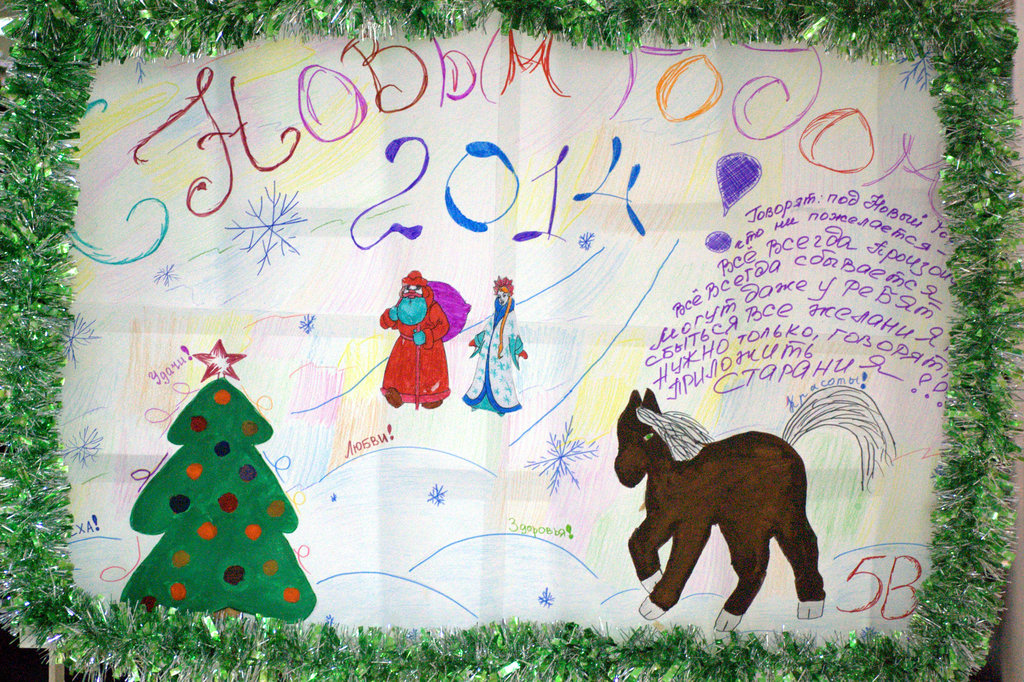 С Новым годом
2014
Говорят: под Новый
что ни пожелается
Всё всегда
всё всегда сбывается
Могут даже у ребят
сбыться все желания
нужно только, говорят
приложить
старания!
Удачи!
Любви!
Красоты!
Здоровья!
5В